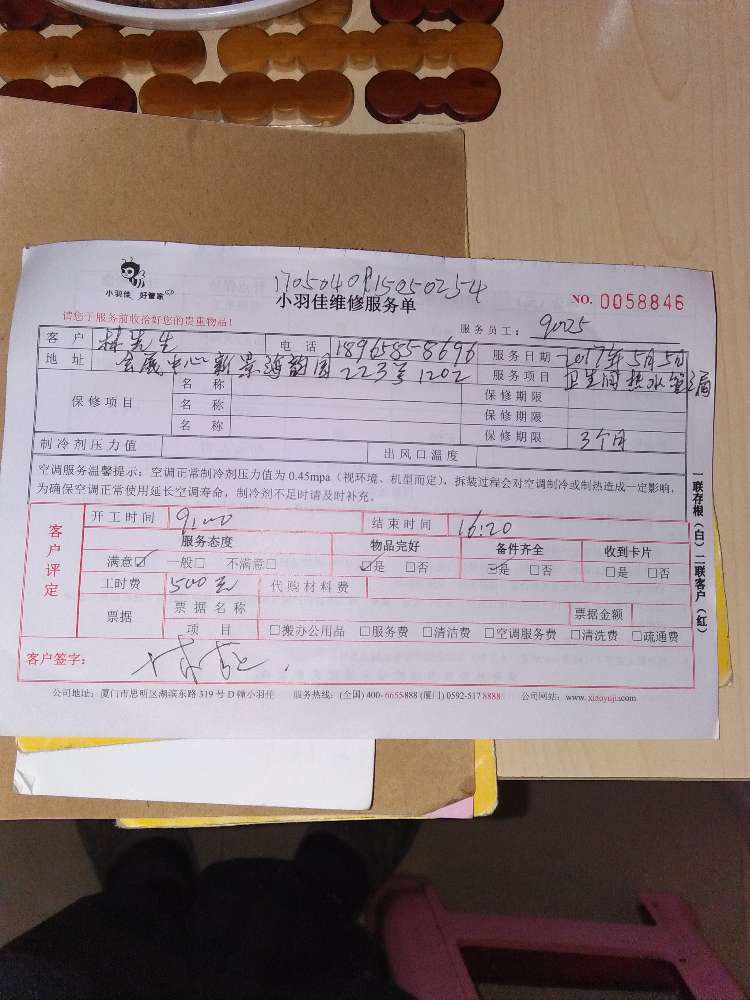 小羽佳 好管家
1705040915050254
小羽佳维修服务单
NO. 0058846
请您于服务前收拾好您的贵重物品!
服务员工: 9025
客户 林先生 电话 18965858696 服务日期 2017年5月5日
地址 会展中心新景海韵园223号1202 服务项目 卫生间热水管
保修项目 名称 保修期限
名称 保修期限
名称 保修期限 3个月
制冷剂压力值 出风口温度
空调服务温馨提示:空调正常制冷剂压力值为0.45mpa(视环境、机型而定),拆装过程会对空调制冷或制热造成一定影响,
为确保空调正常使用延长空调寿命,制冷剂不足时请及时补充。
客户评定
开工时间 9:00 结束时间 16:20
服务态度 物品完好 备件齐全 收到卡片
满意☑ 一般□ 不满意□ ☑是 □否 ☑是 □否 □是 □否
工时费 500元 代购材料费
票据 票据名称 票据金额
项目 □搬办公用品 □服务费 □清洁费 □空调服务费 □清洗费 □疏通费
客户签字:
公司地址:厦门市思明区湖滨东路319号D幢小羽佳 服务热线:(全国)400-6655888(厦门)0592-5178888 公司网站:www.xiaoyujia.com
一联存根(白)二联客户(红)